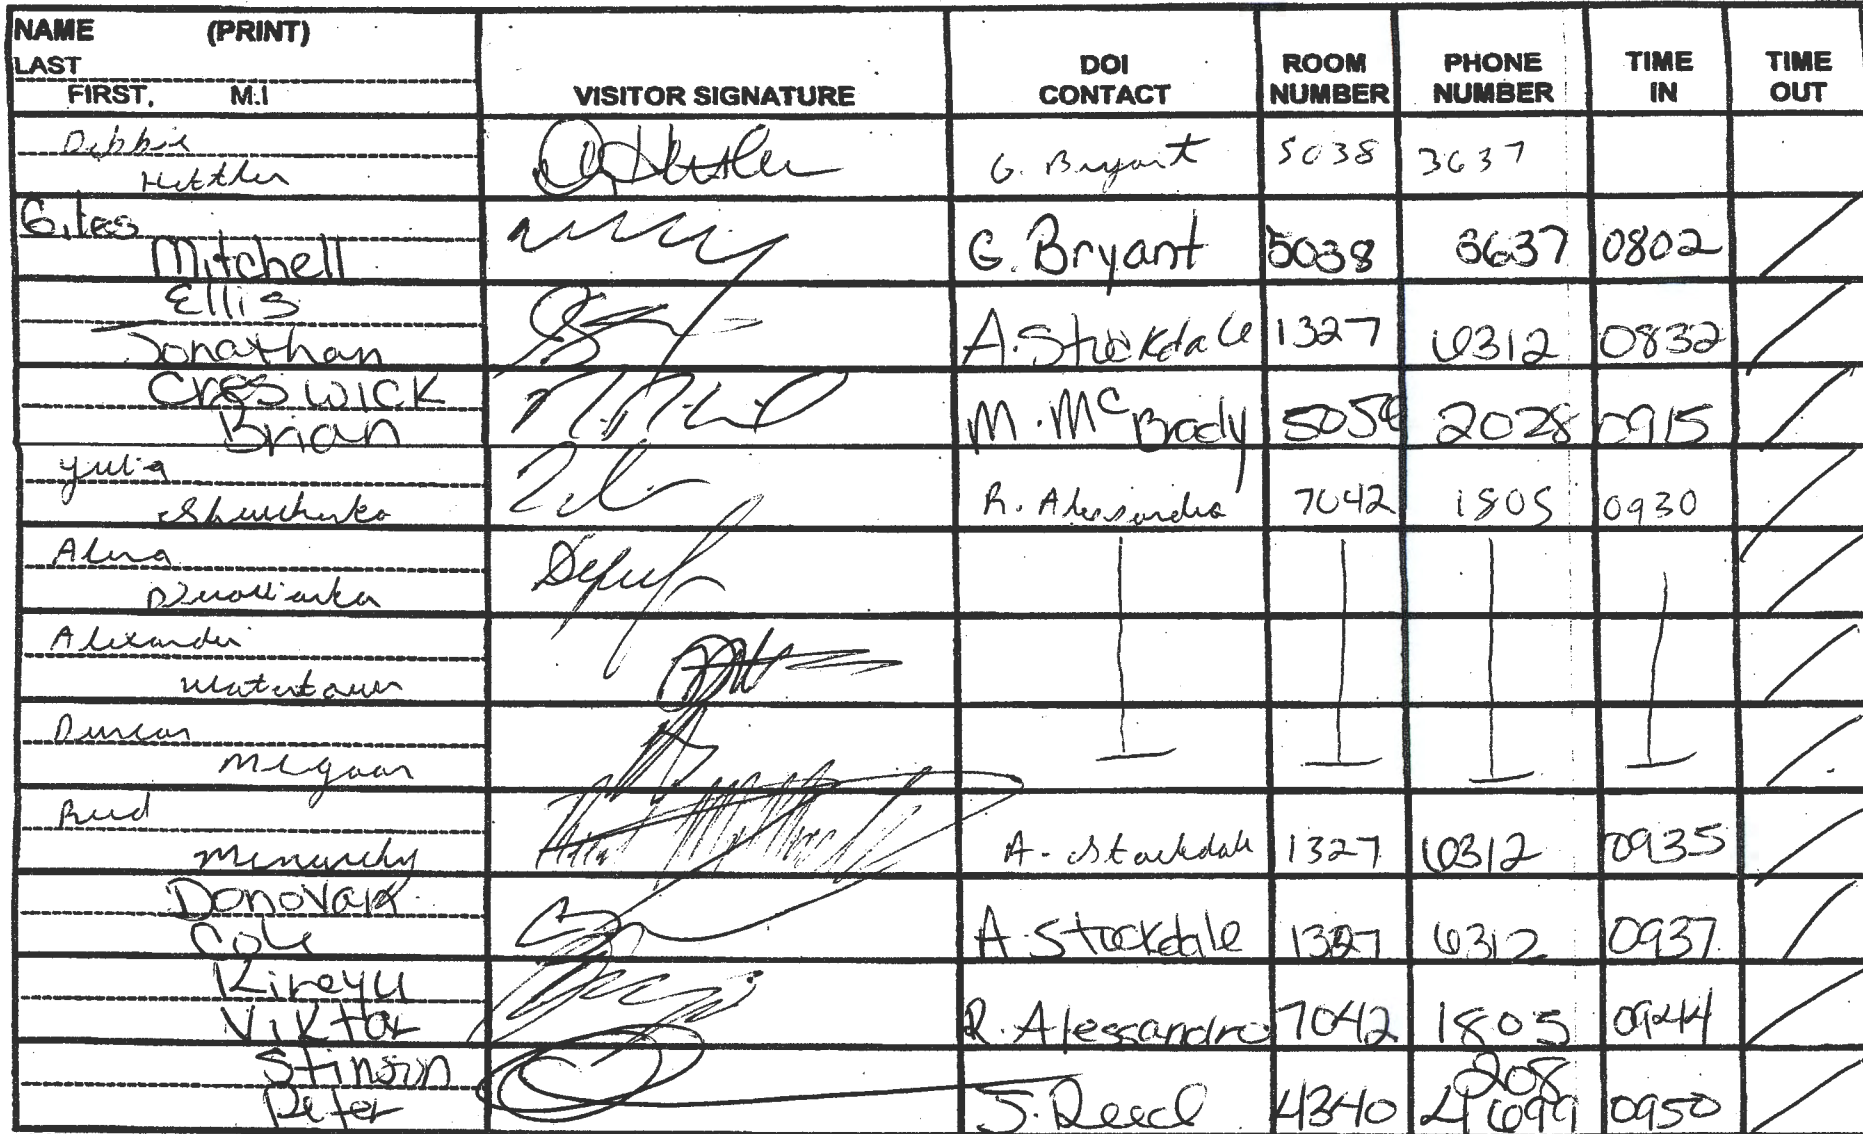 NAME (PRINT)
LAST
FIRST, M.I
VISITOR SIGNATURE
DOI CONTACT
ROOM NUMBER
PHONE NUMBER
TIME IN
TIME OUT
Debbie
Hettler G. Bryant 5038 3637
Giles
Mitchell G. Bryant 5038 3637 0802
Ellis
Jonathan A. Stockdale 1327 6312 0832
Creswick
Brian M. McBrady 2028 0915
Yulia
R. Alessandro 7042 1805 0930
Alina
Alexander
Watertown
Duncan
Reed
A. Stockdale 1327 6312 0935
Donovan
Cole A. Stockdale 1327 6312 0937
Kireyu
Viktor R. Alessandro 7042 1805 0944
Stinson 208
Peter J. Reed 4340 4699 0950